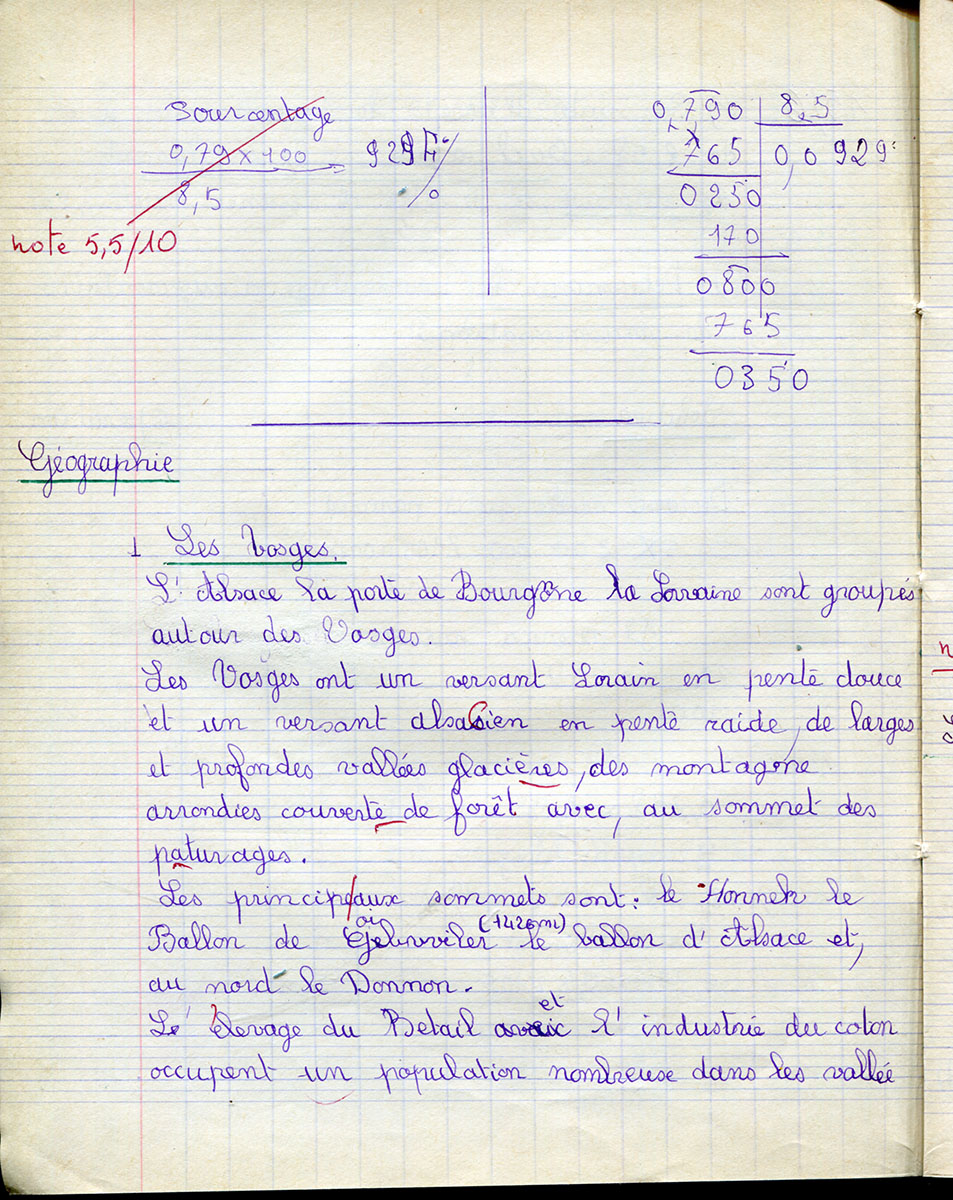 Sourcentage
0,79 x 100
8,5
929 F
%
note 5,5/10
0,790 8,5
765 0,0929
0250
170
0800
765
0350
Géographie
1 Les Vosges.
L'Alsace la porte de Bourgogne la Lorraine sont groupés
autour des Vosges.
Les Vosges ont un versant Lorain en pente douce
et un versant alsacien en pente raide, de larges
et profondes vallées glacières, des montagne
arrondies couverte de forêt avec, au sommet des
paturages.
Les principaux sommets sont: le Honnek le
Ballon de (1426m) le ballon d'Alsace et,
au nord le Donnon.
Le élevage du Betail et l'industrie du coton
occupent un population nombreuse dans les vallée